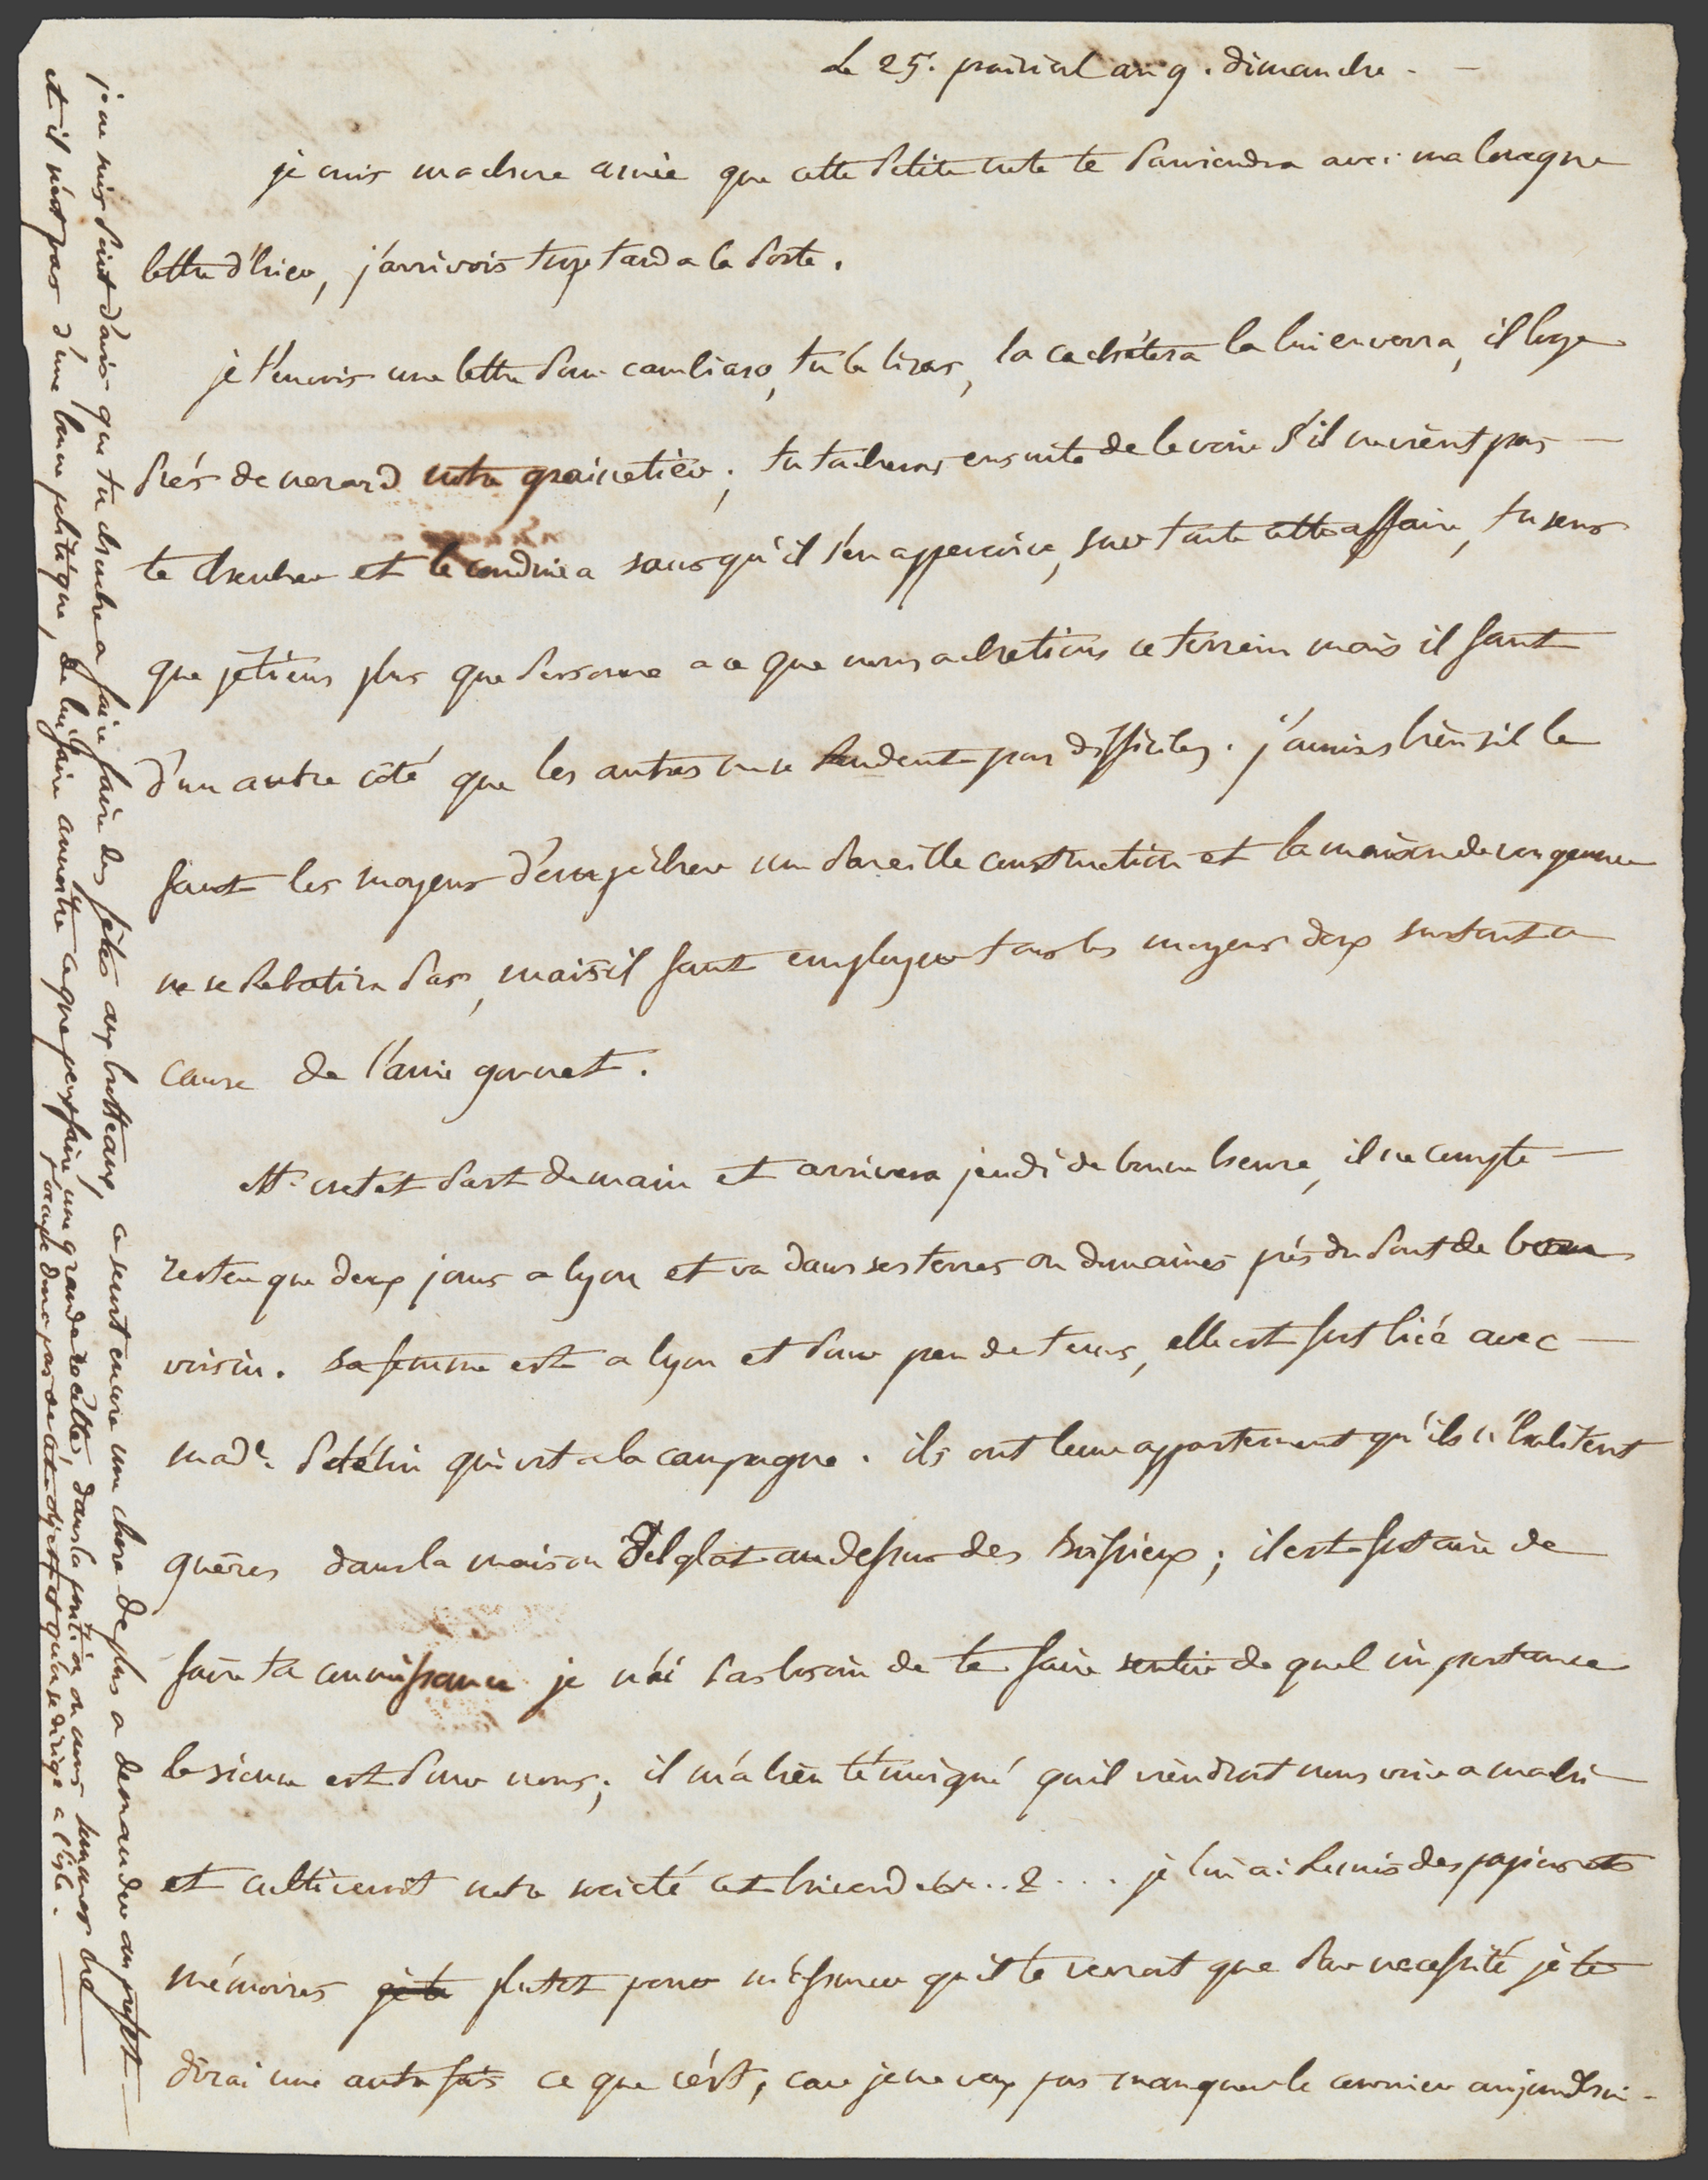 Le 25. prairial an 9. dimanche. —
je crois ma chere amie que cette petite note te parviendra avec ma longue
lettre d'hier, j'arrivois trop tard a la poste.
je t'envois une lettre pour cambiaso, tu la liras, la cachètera la lui enverra, il loge
prés de nerard notre grainetier; tu tacheras ensuite de le voir s'il ne vient pas —
te chercher et le conduira sans qu'il s'en appercoive, sur toute cette affaire, tu sens
que je tiens plus que personne a ce que nous achetions ce terrein mais il faut
d'un autre côté que les autres ne se rendent pas difficiles. j'aurois bien s'il le
faut les moyens d'empêcher une pareille construction et la maison de
ne se rebatira pas, mais il faut employer tous les moyens doux surtout a
cause de l'ami gonnet.
Mr. cretet part demain et arrivera jeudi de bonne heure, il ne compte —
rester que deux jours a lyon et va dans ses terres ou domaines prés du pont de beau
voisin. sa femme est a lyon et pour peu de tems, elle est fort liée avec —
made. qui vit a la campagne. ils ont leur appartement qu'ils n'habitent
guères dans la maison delglat au dessus des boissieux; il est fort aise de
faire ta connoissance je n'ai pas besoin de te faire sentir de quel importance
la sienne est pour nous; il m'a bien témoigné qu'il viendroit nous voir a
et cultiveroit notre societé je lui ai remis des papiers et
mémoires je te plutot pour m'assurer qu'il te verroit que par necessité je te
dirai une autre fois ce que c'est, car je ne veux pas manquer le courier aujourdhui.
je ne suis point d'avis que tu cherche a faire faire des fêtes aux brotteaux, ce seroit encore une chose de plus a demander au prefet —
et il n'est pas d'une bonne politique, de lui faire connoitre ce que peux faire une grande recette, dans la position ou nous sommes
t'occupe donc pas de cet objet et qu'on se dirige a l'isle. —